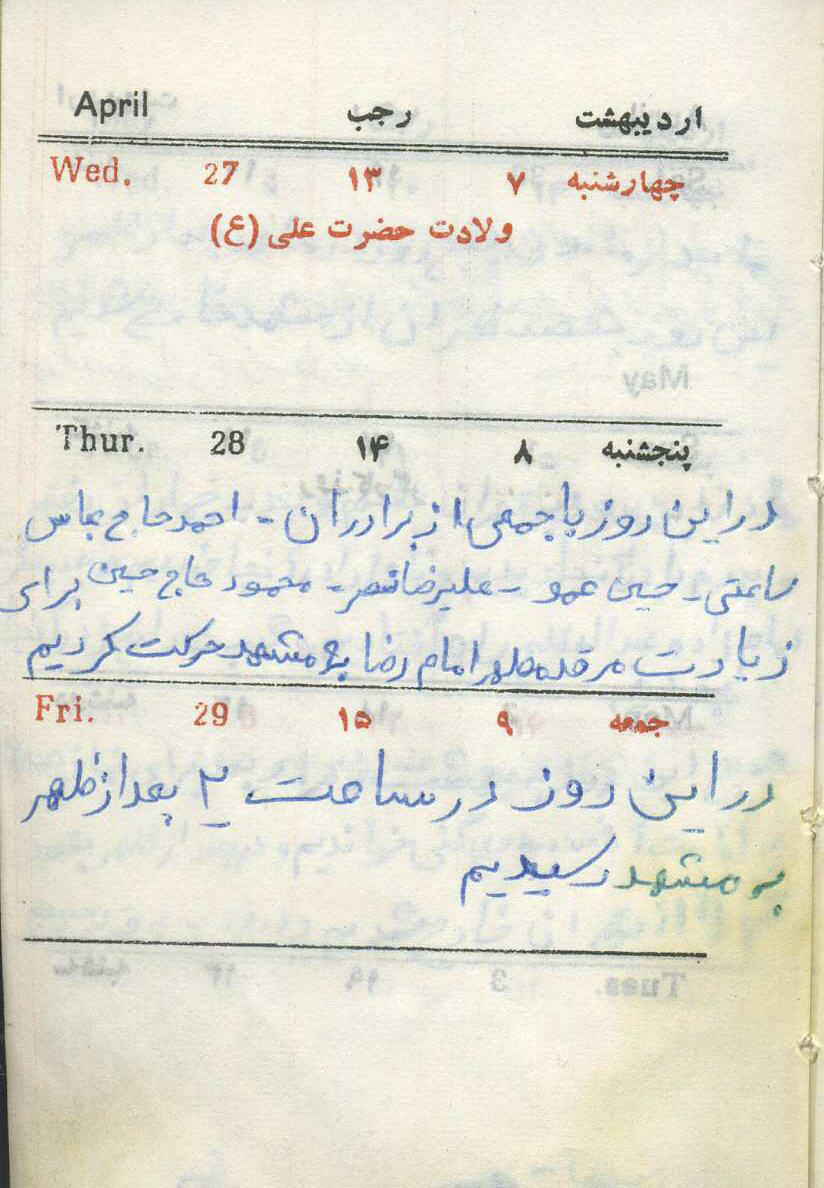 اردیبهشت رجب April
چهارشنبه ۷ ۱۳ 27 Wed.
ولادت حضرت علی (ع)
پنجشنبه ۸ ۱۴ 28 Thur.
در این روز با جمعی از برادران - احمد حاج عباس
ساعتی - حسین عمو - علیرضا نصر - محمود حاج حسین برای
زیارت مرقد مطهر امام رضا به مشهد حرکت کردیم
جمعه ۹ ۱۵ 29 Fri.
در این روز در ساعت ۲ بعد از ظهر
به مشهد رسیدیم